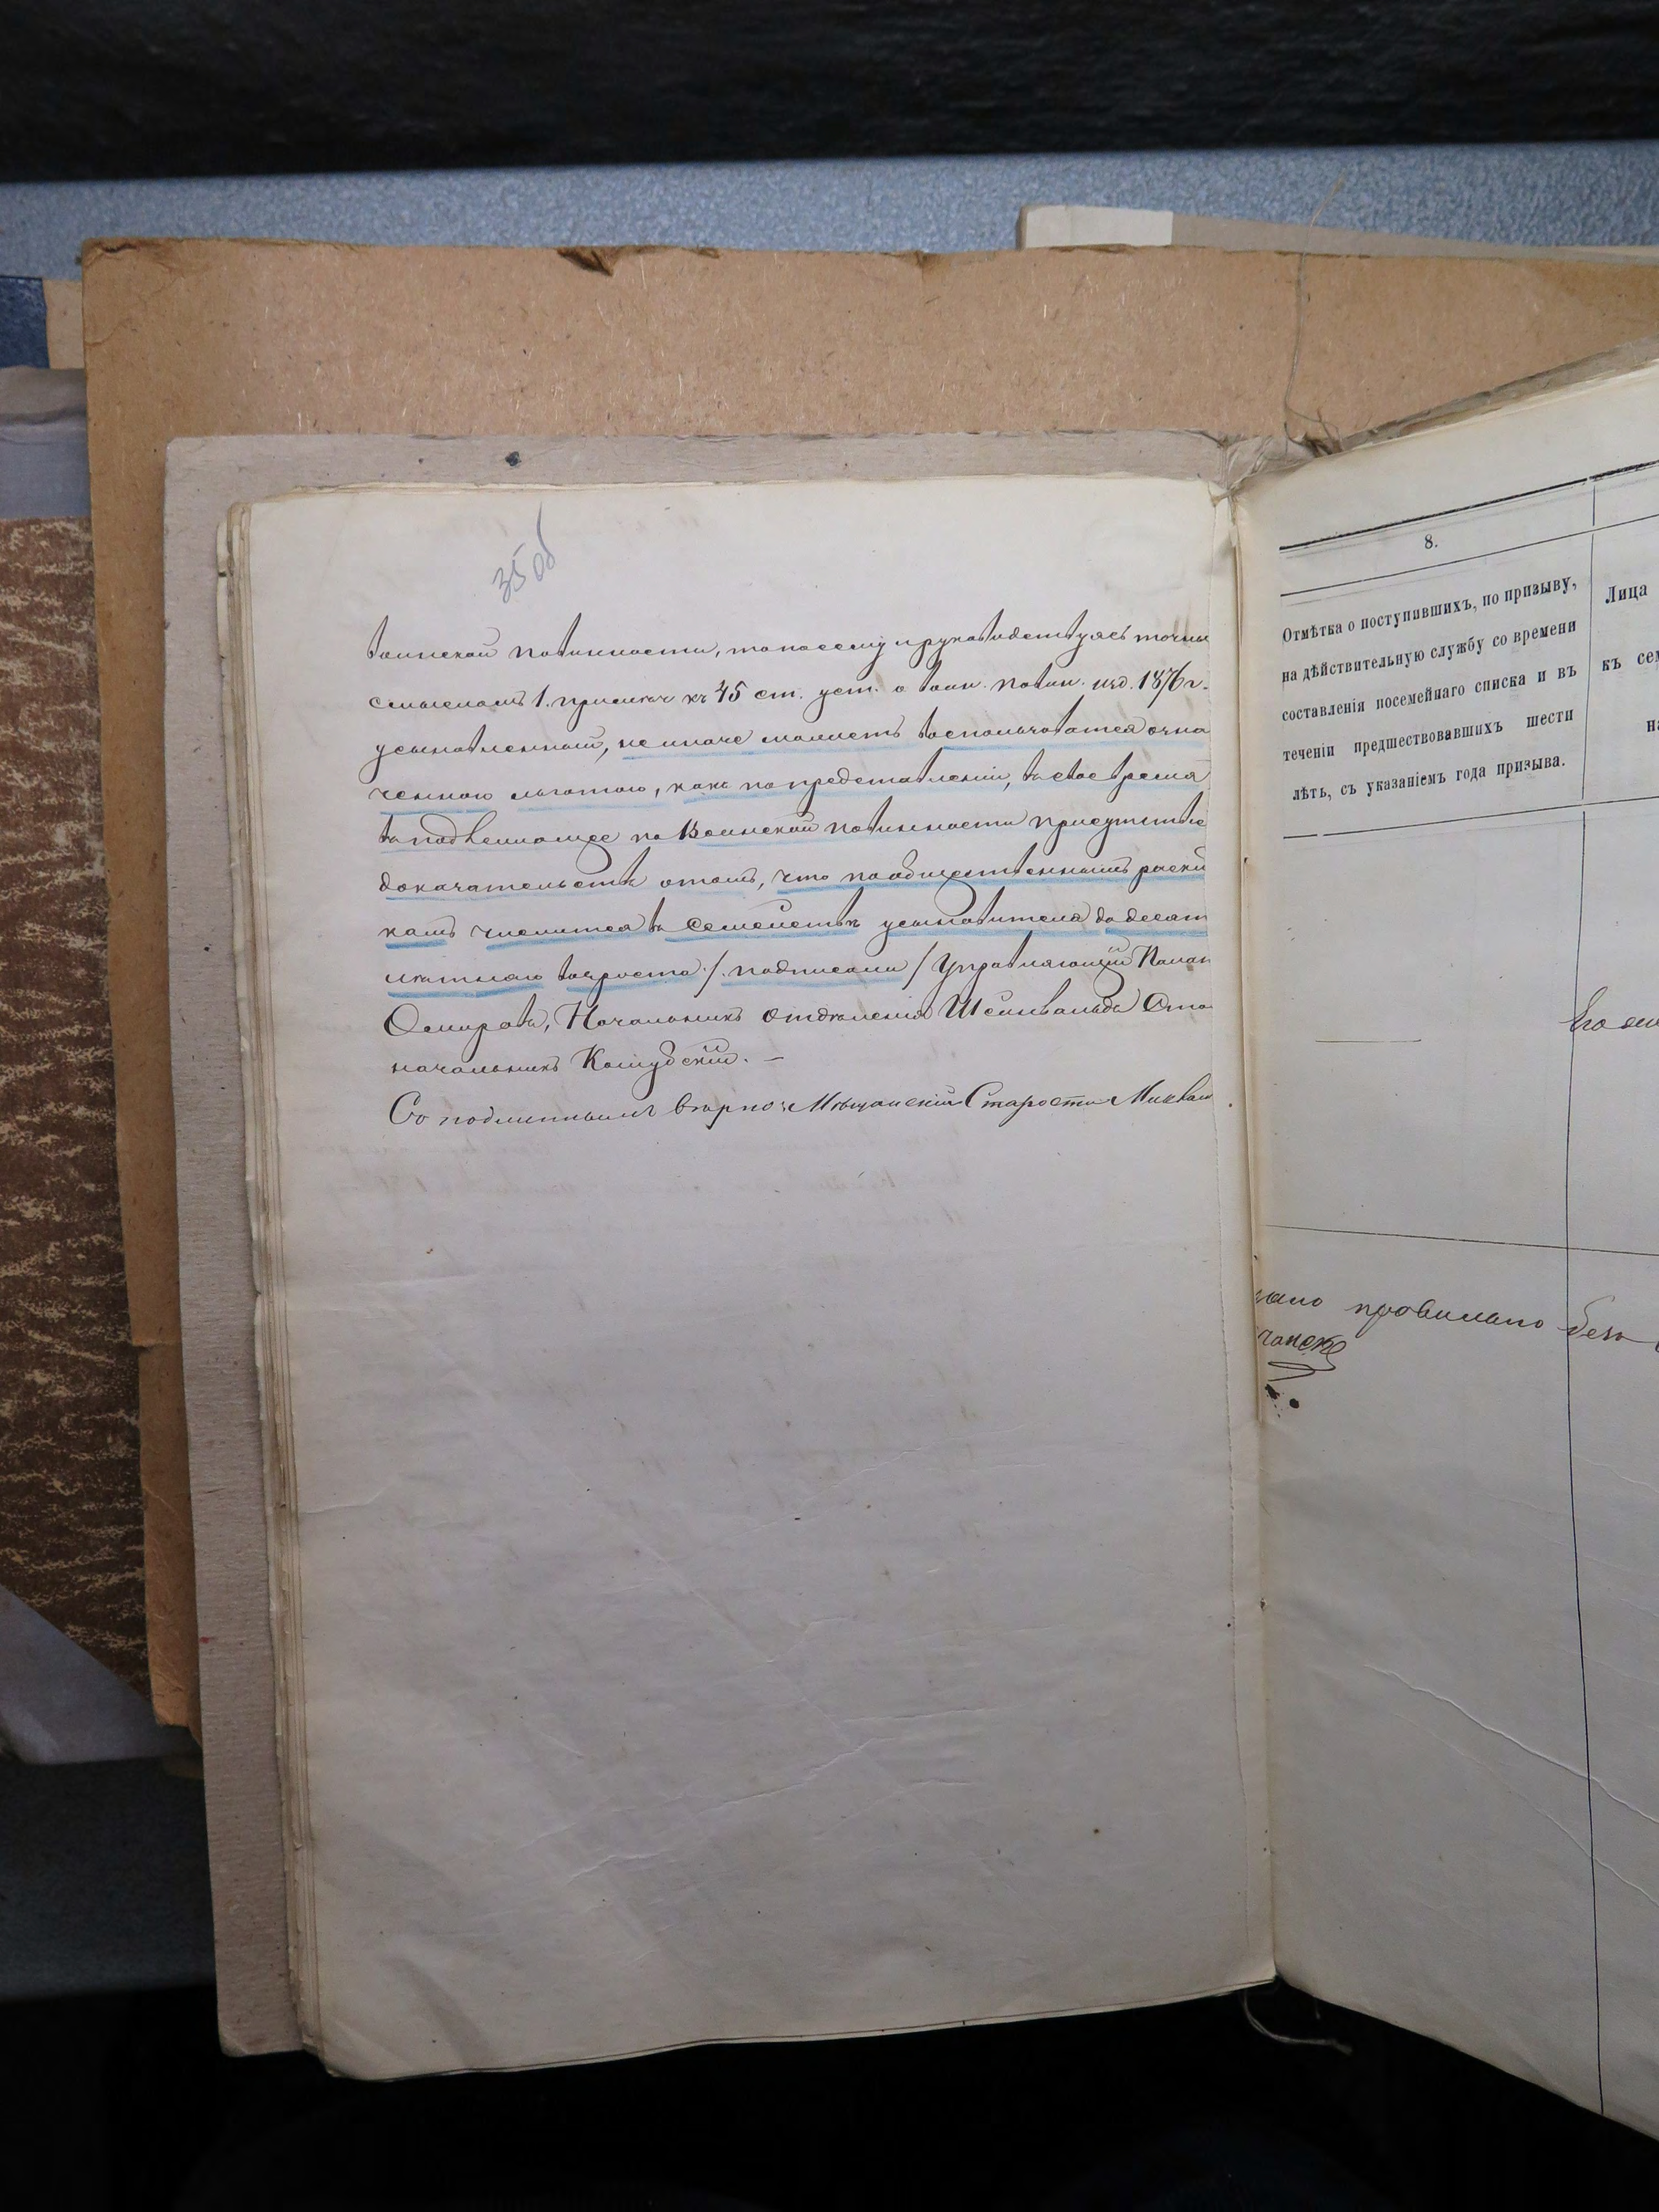 35 об
воинской повинности, то посему и руководствуясь точны
смысломъ 1. примѣч къ 45 ст. уст. о воин. повин. изд. 1876 г.
усыновленный, не иначе можетъ воспользоватся озна
ченною льготою, какъ по представленіи, въ свое время
въ подлежащее по Воинской повинности присутствіе
доказательствъ о томъ, что по общественнымъ
камъ числится въ семействѣ усыновителя до десят
лѣтняго возроста. / подписали / Управляющій Палат
Начальникъ Отдѣленія Сто
начальникъ
Съ подлиннымъ вѣрно: Мѣщанскій Староста
8.
Отмѣтка о поступившихъ, по призыву,
на дѣйствительную службу со времени
составленія посемейнаго списка и въ
теченіи предшествовавшихъ шести
лѣтъ, съ указаніемъ года призыва.
Лица
къ сем
на
Его
правильно безъ